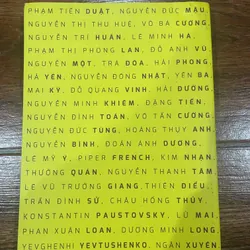 PHẠM TIẾN DUẬT, NGUYỄN ĐỨC MẬU,
NGUYỄN THỊ THU HUỆ, VÕ BA CƯỜNG,
NGUYỄN TRÍ HUÂN, LÊ MINH HÀ,
PHẠM THỊ PHONG LAN, ĐỖ ANH VŨ,
NGUYỄN MỘT, TRA DOA, HẢI PHONG,
HÀ YÊN, NGUYỄN ĐÔNG NHẬT, YÊN BA,
MAI KỲ, ĐỖ QUANG VINH, HẢI ĐƯỜNG,
NGUYỄN MINH KHIÊM, ĐĂNG TIẾN,
NGUYỄN ĐÌNH TOÁN, VÕ TẤN CƯỜNG,
NGUYỄN ĐỨC TÙNG, HOÀNG THỤY ANH,
NGUYÊN BÌNH, ĐOÀN ÁNH DƯƠNG,
LÊ MỸ Ý, PIPER FRENCH, KIM NHẠN,
THƯỜNG QUÁN, NGUYỄN THANH TÂM,
LÊ VŨ TRƯỜNG GIANG, THIÊN DIỂU,
TRẦN ĐÌNH SỬ, CHÂU HỒNG THỦY,
KONSTANTIN PAUSTOVSKY, LỮ MAI,
PHAN XUÂN LOAN, DƯƠNG MINH LONG,
YEVGHENHI YEVTUSHENKO, NGÂN XUYÊN